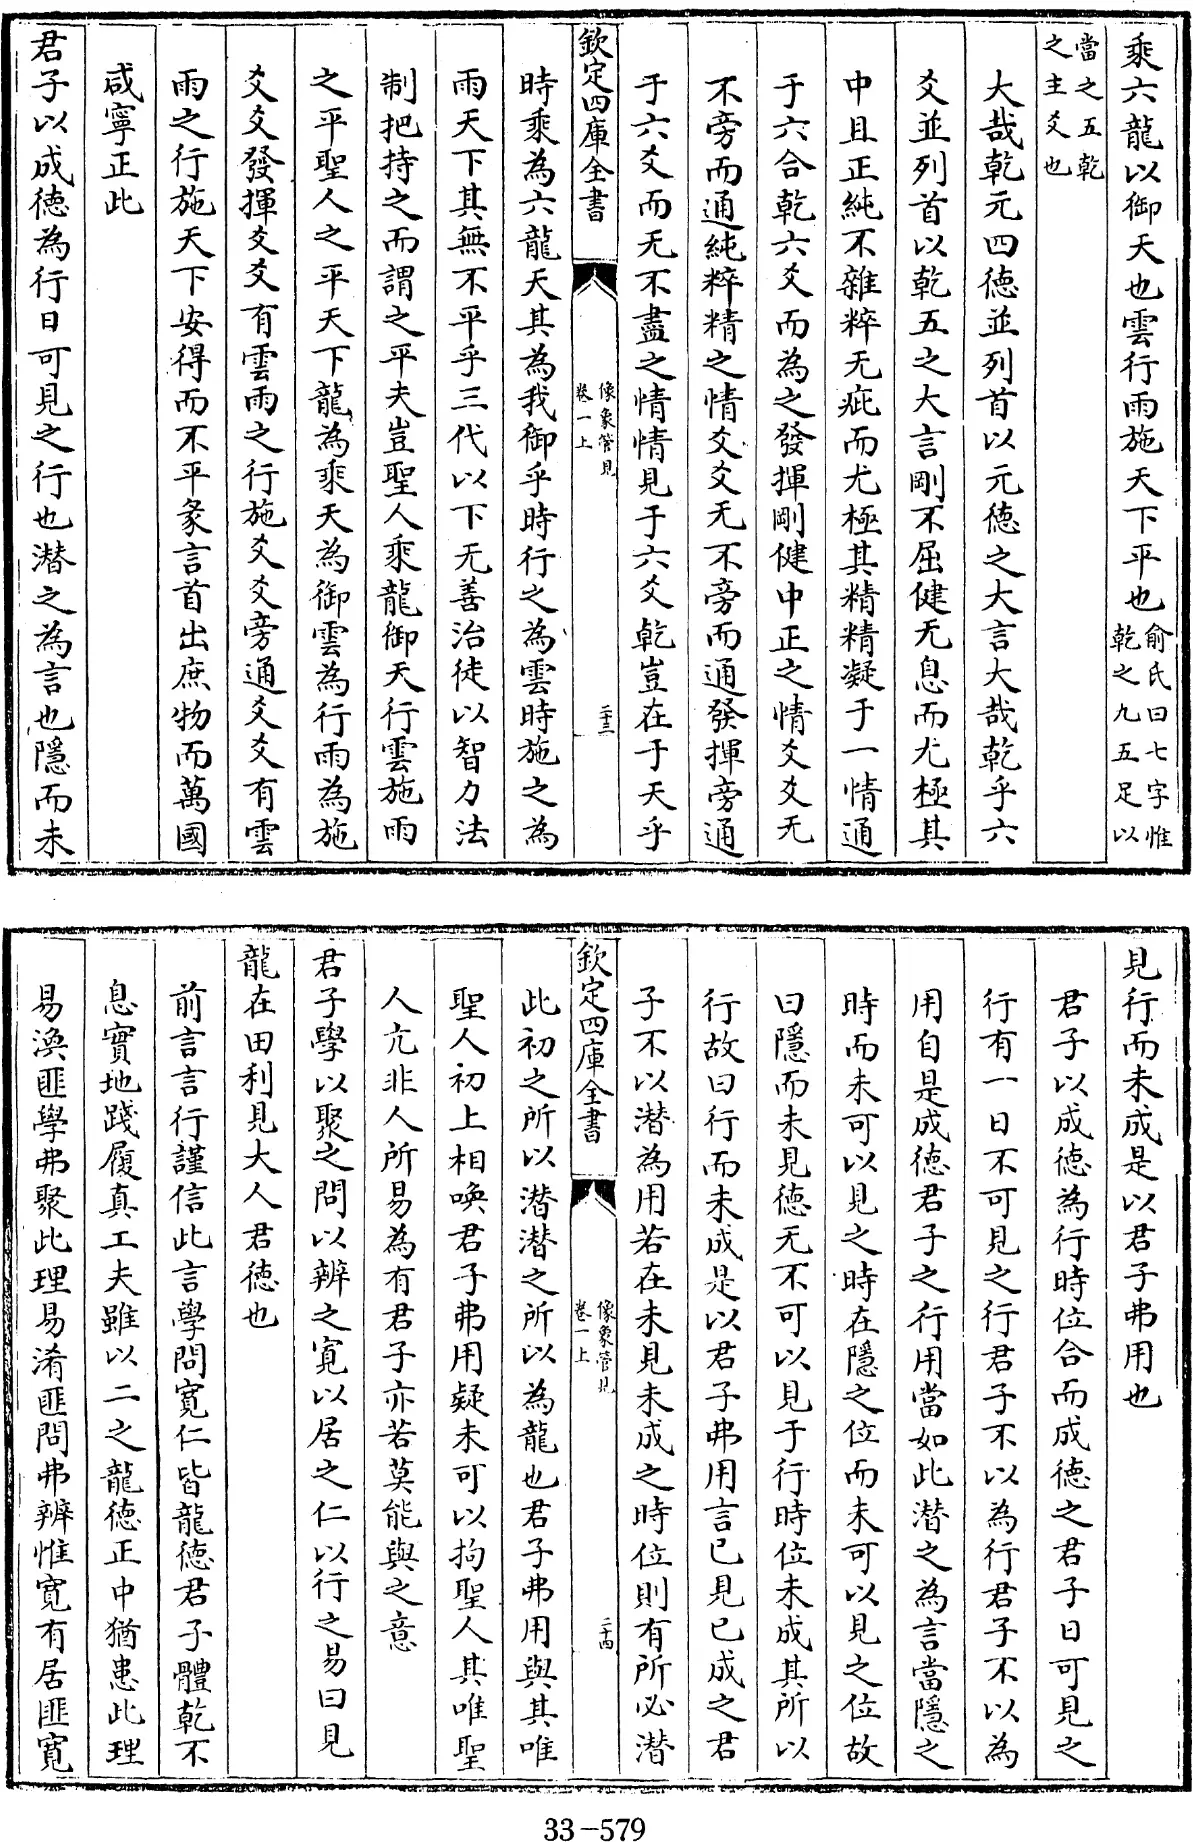 乘六龍以御天也雲行雨施天下平也俞氏曰七字惟乾之九五足以
當之五乾之主爻也
大哉乾元四德並列首以元德之大言大哉乾乎六
爻並列首以乾五之大言剛不屈健无息而尤極其
中且正純不雜粹无疵而尤極其精精凝于一情通
于六合乾六爻而為之發揮剛健中正之情爻爻无
不旁而通純粹精之情爻爻无不旁而通發揮旁通
于六爻而无不盡之情情見于六爻乾豈在于天乎
欽定四庫全書 像象管見卷一上 二十三
時乘為六龍天其為我御乎時行之為雲時施之為
雨天下其無不平乎三代以下无善治徒以智力法
制把持之而謂之平夫豈聖人乘龍御天行雲施雨
之平聖人之平天下龍為乘天為御雲為行雨為施
爻爻發揮爻爻有雲雨之行施爻爻旁通爻爻有雲
雨之行施天下安得而不平彖言首出庶物而萬國
咸寧正此
君子以成德為行日可見之行也潛之為言也隱而未
見行而未成是以君子弗用也
君子以成德為行時位合而成德之君子日可見之
行有一日不可見之行君子不以為行君子不以為
用自是成德君子之行用當如此潛之為言當隱之
時而未可以見之時在隱之位而未可以見之位故
曰隱而未見德无不可以見于行時位未成其所以
行故曰行而未成是以君子弗用言已見已成之君
子不以潛為用若在未見未成之時位則有所必潛
欽定四庫全書 像象管見卷一上 二十四
此初之所以潛潛之所以為龍也君子弗用與其唯
聖人初上相喚君子弗用疑未可以拘聖人其唯聖
人亢非人所易為有君子亦若莫能與之意
君子學以聚之問以辨之寬以居之仁以行之易曰見
龍在田利見大人君德也
前言言行謹信此言學問寬仁皆龍德君子體乾不
息實地踐履真工夫雖以二之龍德正中猶患此理
易渙匪學弗聚此理易淆匪問弗辨惟寬有居匪寬
33-579